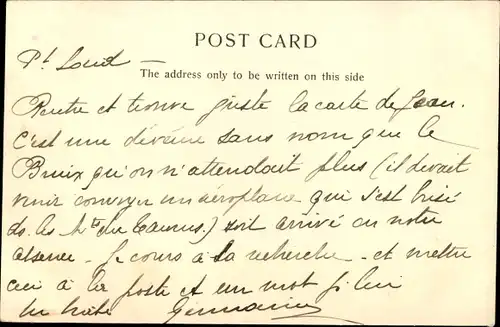 POST CARD
Pt Soud —
The address only to be written on this side
Rentre et trouve juste la carte de Jean.
C'est une déveine sans nom que le
Bruix qu'on n'attendait plus (il devait
venir convoyer un aéroplane qui s'est brisé
ds. les Mts du Taurus.) soit arrivé en notre
absence – Je cours à sa recherche – et mettre
ceci à la poste et un mot p. lui
En hâte Germaine